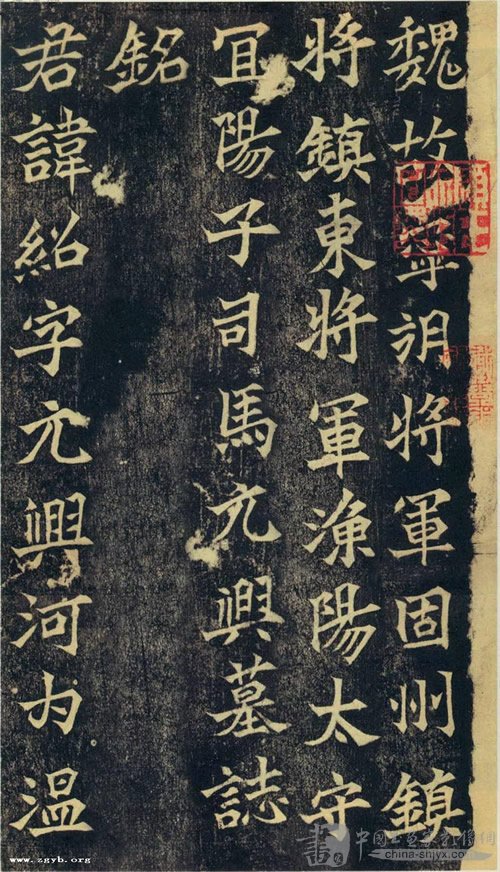 魏故寧朔將軍固州鎮
將鎮東將軍漁陽太守
宜陽子司馬元興墓誌
銘
君諱紹字元興河內溫
www.zgyb.org
china-snjyx.com